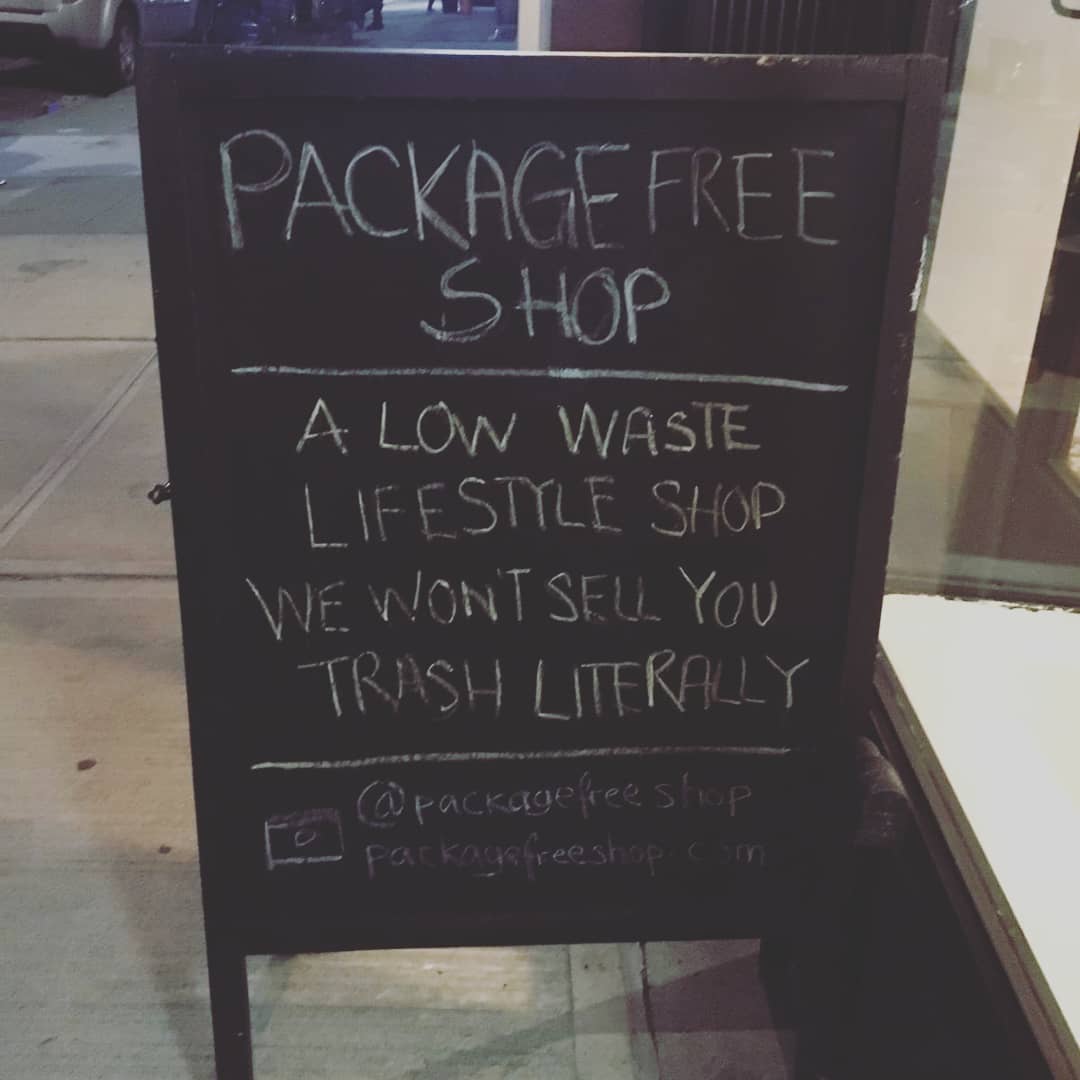 PACKAGE FREE
SHOP
A LOW WASTE
LIFESTYLE SHOP
WE WON'T SELL YOU
TRASH LITERALLY
@packagefreeshop
packagefreeshop.com